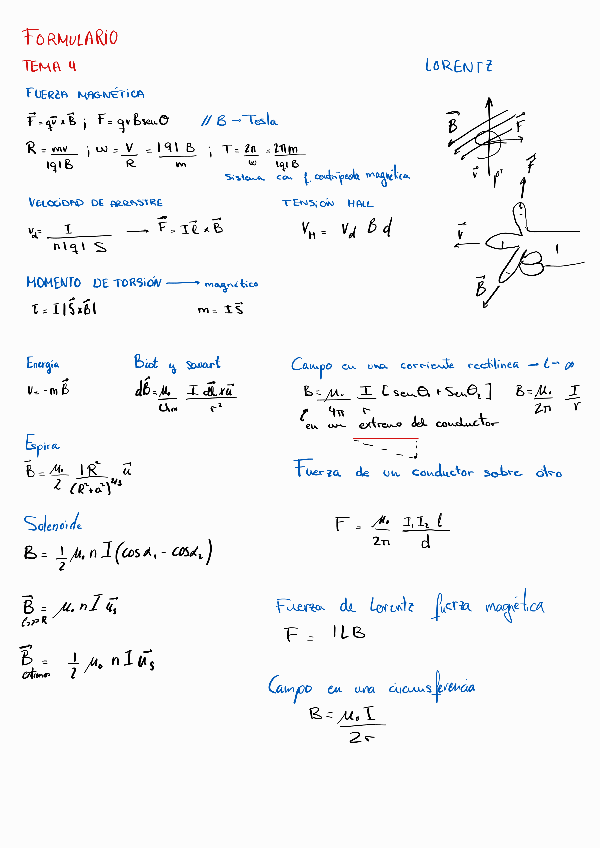 FORMULARIO
TEMA 4
LORENTZ
FUERZA MAGNÉTICA
F⃗ = qv⃗ × B⃗ ; F = qvBsenθ // B → Tesla
R = mv/|q|B ; ω = V/R = |q|B/m ; T = 2π/ω = 2πm/|q|B
Sistema con f. centrípeta magnética
B⃗ F⃗ v⃗ p⁺
VELOCIDAD DE ARRASTRE TENSIÓN HALL
v_d = I/(n|q|S) → F⃗ = Iℓ⃗ × B⃗ V_H = V_d B d
F⃗ v⃗ B⃗ I
MOMENTO DE TORSIÓN → magnético
τ = I|S⃗×B⃗| m = I S⃗
Energía Biot y Savart Campo en una corriente rectilínea → L → ∞
V = -m B⃗ dB⃗ = μ₀/4π I dl⃗ × u⃗/r² B = μ₀/4π I/r [senθ₁ + senθ₂] B = μ₀/2π I/r
en un extremo del conductor
Espira
B⃗ = μ₀/2 IR²/(R²+a²)^2/3 u⃗
Fuerza de un conductor sobre otro
F = μ₀/2π I₁I₂ℓ/d
Solenoide
B = 1/2 μ₀ n I (cos α₁ - cos α₂)
B⃗ = μ₀ n I u⃗s
L>>R
Fuerza de Lorentz fuerza magnética
F = ILB
B⃗ = 1/2 μ₀ n I u⃗s
Campo en una circunsferencia
B = μ₀ I/2r